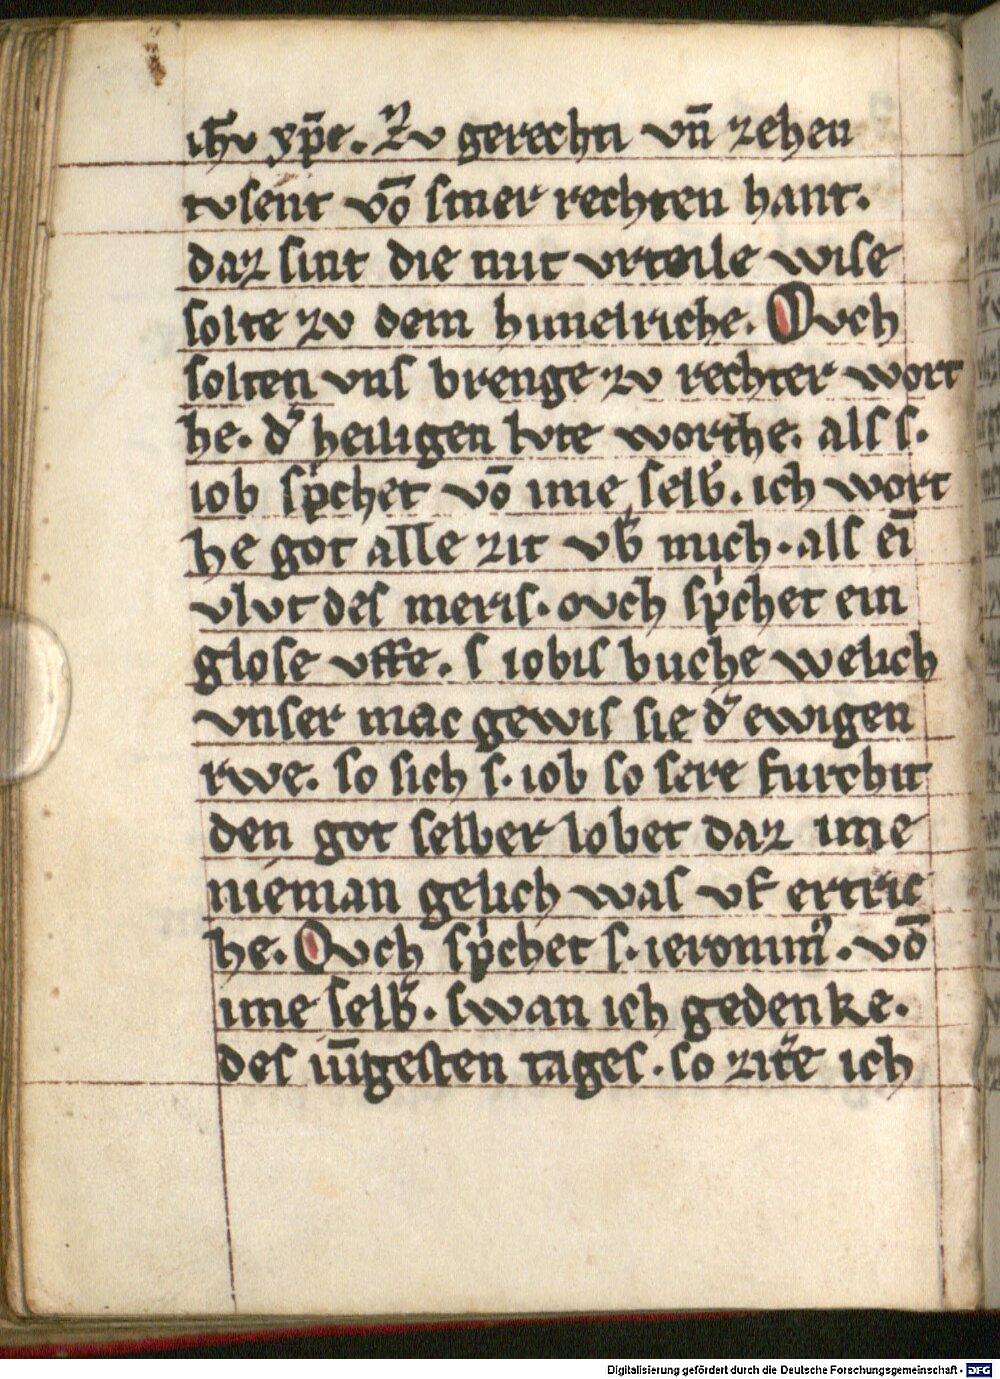 ihv xp̄e. Zv gerechti vn̄ zehen
tvsent vō siner rechten hant.
daz sint die nut vrteile wise
solte zv dem himelriche. Ovch
solten vns brenge zv rechter wort
he. dˀ heiligen lvte worthe. als s.
iob spͥchet vō ime selb̾. ich wort
he got alle zit vb̾ mich. als eī
vlvt des meris. ovch spͥchet ein
glose vffe. s iobis buche welich
vnser mac gewis sie dˀ ewigen
rwe. so sich s. iob so sere furchit
den got selber lobet daz ime
nieman gelich was vf ertric
he. Ovch spͥchet s. ieronimꝰ. vō
ime selb̾. swan ich gedenke.
des iūgesten tages. so zitˀe ich
Digitalisierung gefördert durch die Deutsche Forschungsgemeinschaft - DFG